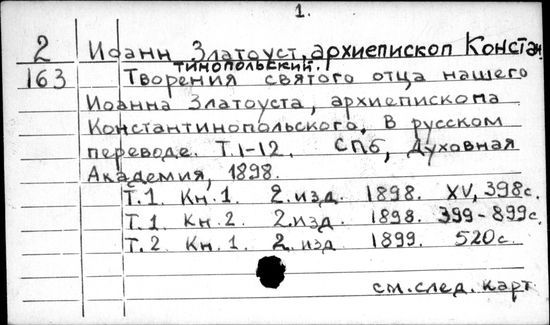 1.
2 Иоанн Златоуст, архиепископ Констан
тинопольский.
163 Творения святого отца нашего
Иоанна Златоуста, архиепископа
Константинопольского, В русском
переводе. Т.1-12. СПб, Духовная
Академия, 1898.
Т.1. Кн.1. 2.изд. 1898. XV, 398с.
Т.1. Кн.2. 2.изд. 1898. 399-899с.
Т.2. Кн.1. 2.изд 1899. 520с.
см.след.карт